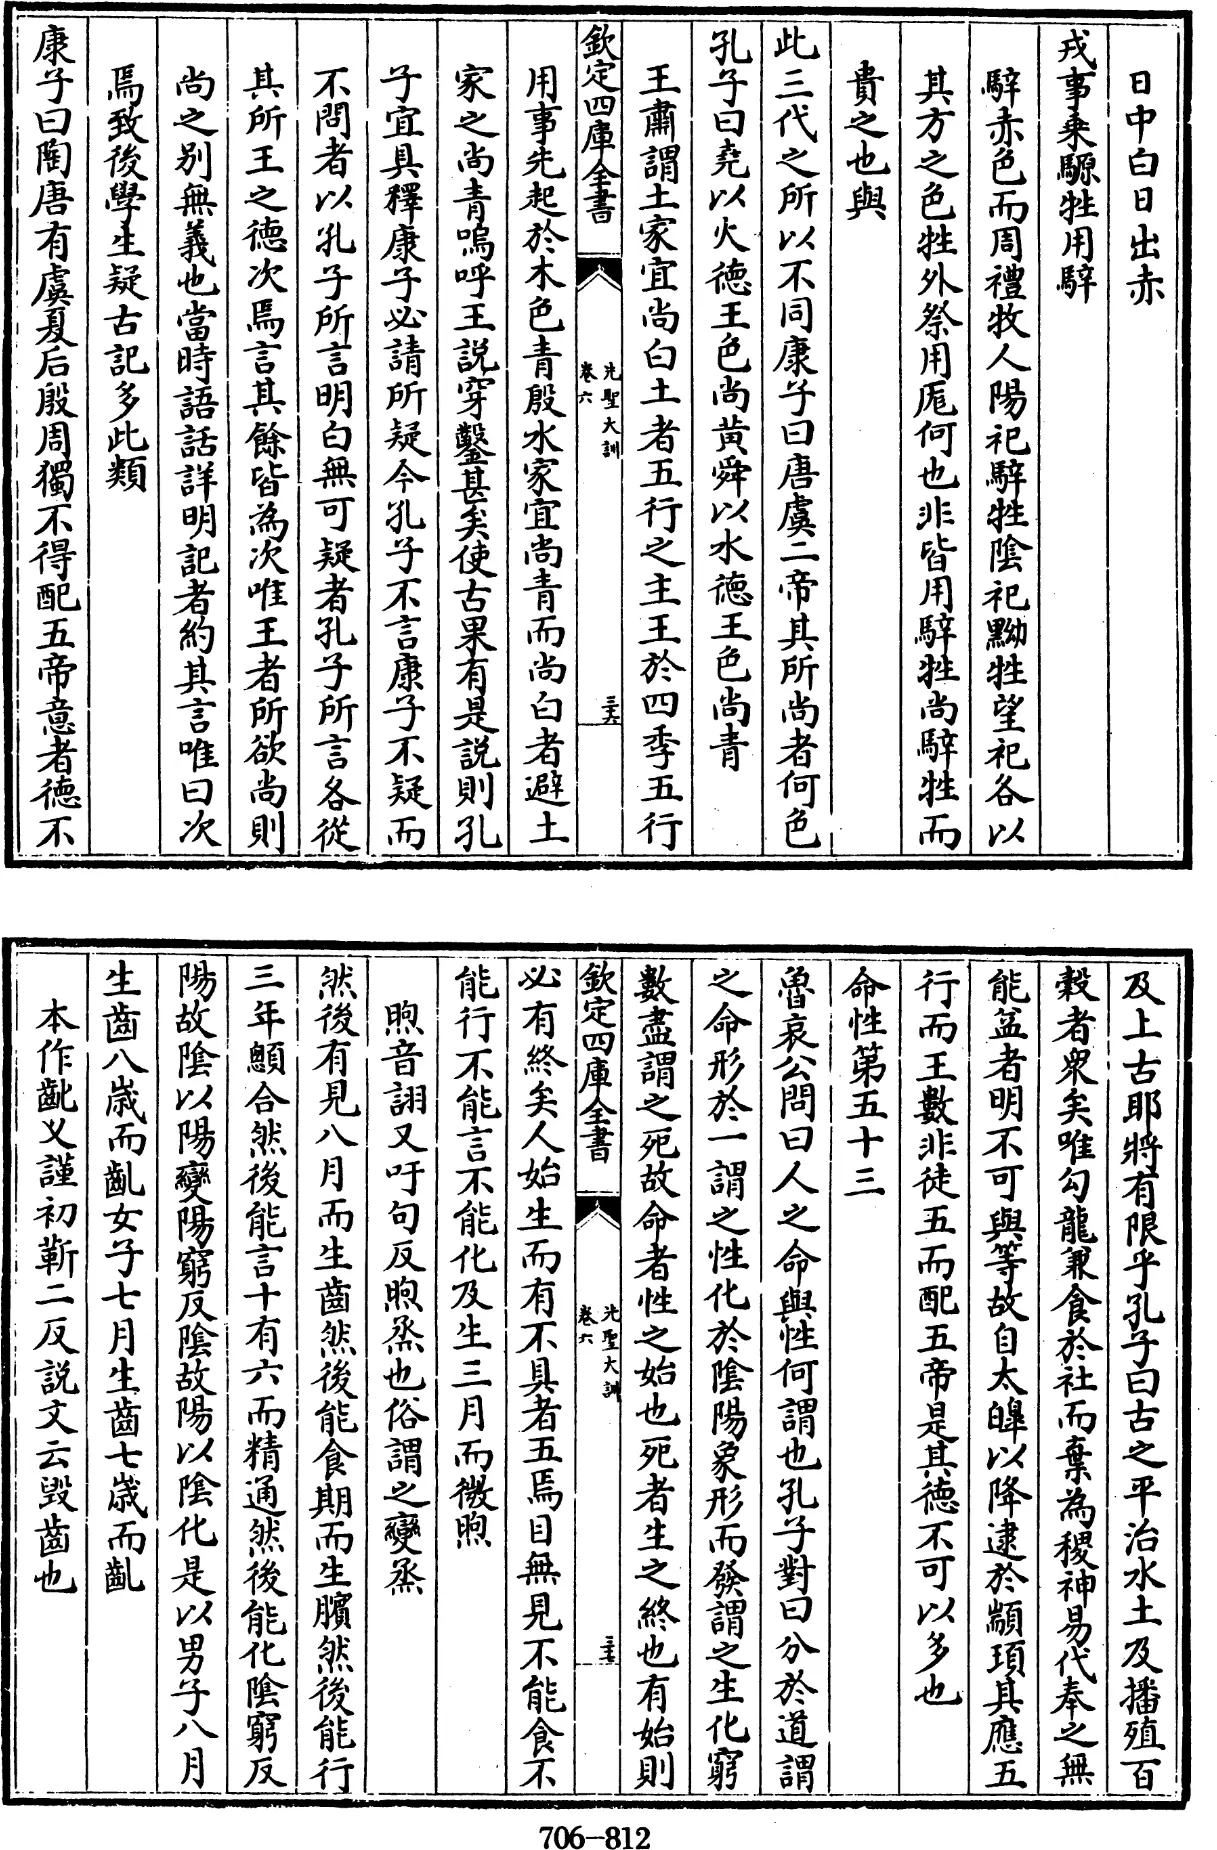 日中白日出赤
戎事乗騵牲用騂
騂赤色而周禮牧人陽祀騂牲陰祀黝牲望祀各以
其方之色牲外祭用厖何也非皆用騂牲尚騂牲而
貴之也與
此三代之所以不同康子曰唐虞二帝其所尚者何色
孔子曰堯以火德王色尚黄舜以水德王色尚青
王肅謂土家宜尚白土者五行之主王於四季五行
欽定四庫全書
先聖大訓
卷六
三十六
用事先起於木色青殷水家宜尚青而尚白者避土
家之尚青嗚呼王説穿鑿甚矣使古果有是説則孔
子宜具釋康子必請所疑今孔子不言康子不疑而
不問者以孔子所言明白無可疑者孔子所言各從
其所王之德次焉言其餘皆為次唯王者所欲尚則
尚之别無義也當時語話詳明記者約其言唯曰次
焉致後學生疑古記多此類
康子曰陶唐有虞夏后殷周獨不得配五帝意者德不
及上古耶將有限乎孔子曰古之平治水土及播殖百
穀者衆矣唯勾龍兼食於社而棄為稷神易代奉之無
能益者明不可與等故自太皥以降逮於顓頊其應五
行而王數非徒五而配五帝是其德不可以多也
命性第五十三
魯哀公問曰人之命與性何謂也孔子對曰分於道謂
之命形於一謂之性化於陰陽象形而發謂之生化窮
數盡謂之死故命者性之始也死者生之終也有始則
欽定四庫全書
先聖大訓
卷六
三十七
必有終矣人始生而有不具者五焉目無見不能食不
能行不能言不能化及生三月而微煦
煦音詡又吁句反煦烝也俗謂之變烝
然後有見八月而生齒然後能食期而生臏然後能行
三年顖合然後能言十有六而精通然後能化陰窮反
陽故陰以陽變陽窮反陰故陽以陰化是以男子八月
生齒八歳而齓女子七月生齒七歳而齓
本作齔乂謹初靳二反説文云毁齒也
706-812